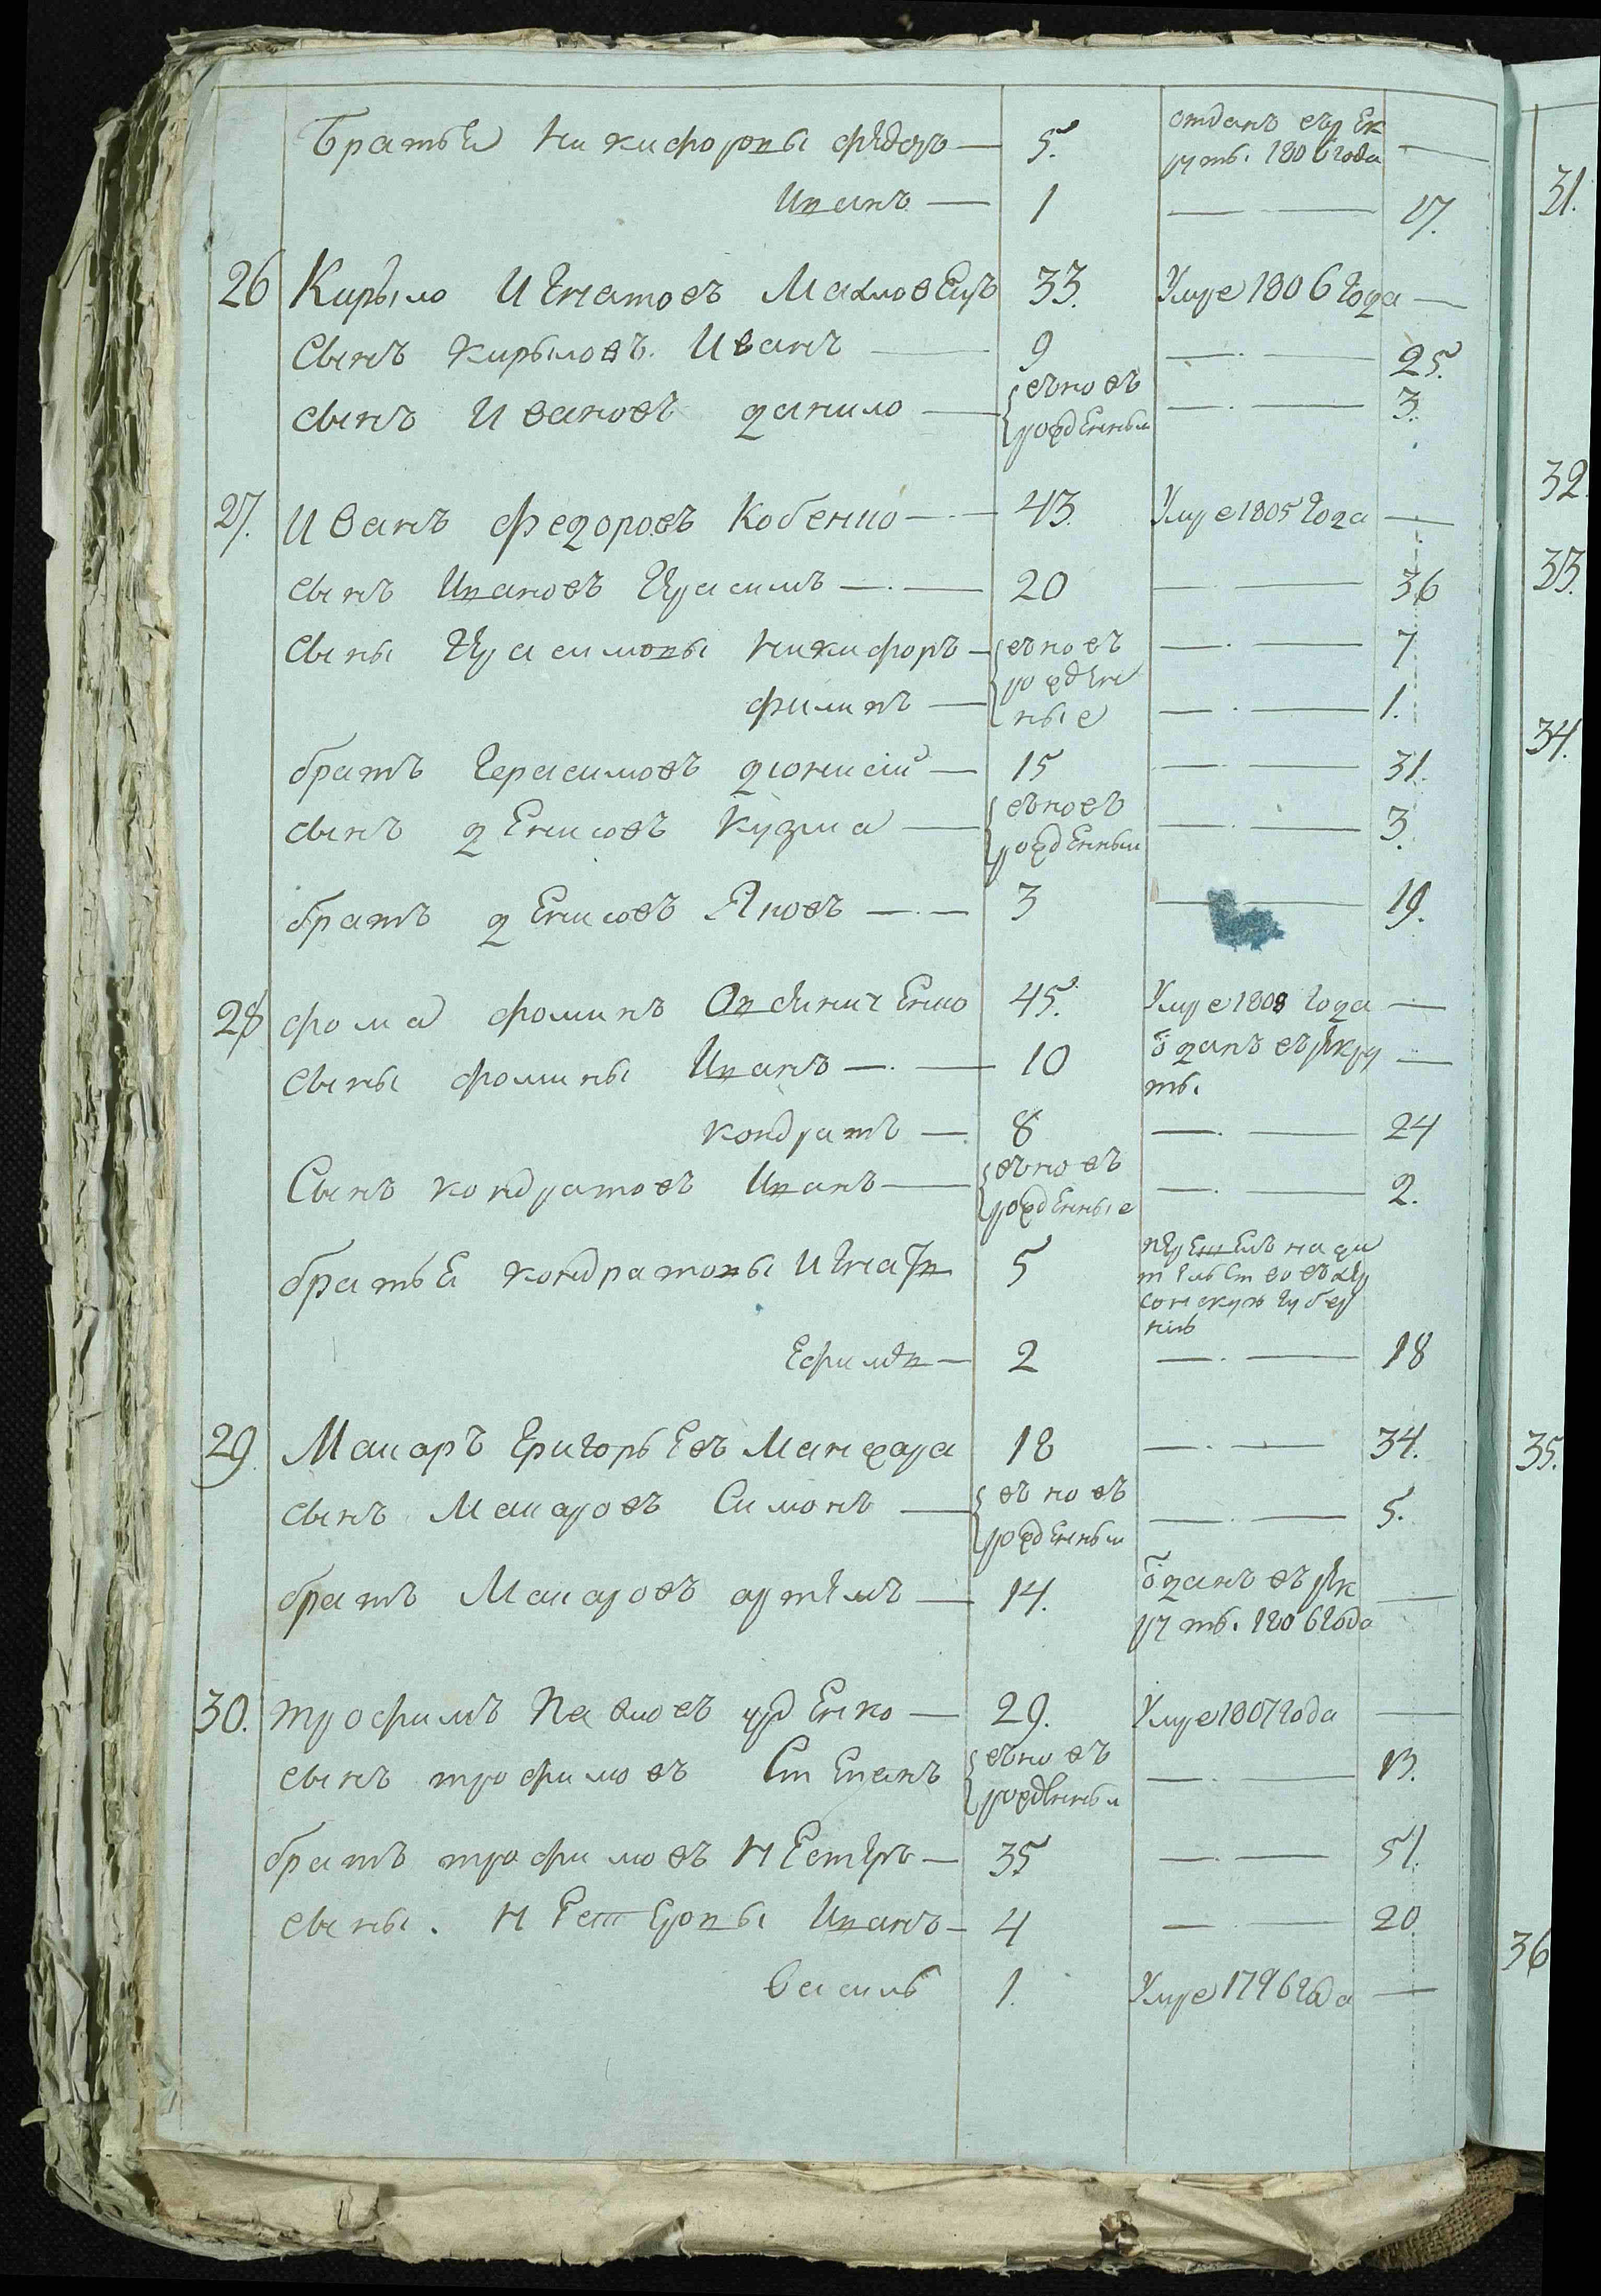 Братья Никифоровы Федоръ — 5. отданъ въ рек
руты. 1806 года —
Иванъ — 1 — 17.
26 Кирыло Игнатовъ Махновецъ 33. Умре 1806 года —
Сынъ Кирыловъ Иванъ — 9 — 25.
сынъ Ивановъ данило — вновъ
рожденный — 3.
27. Иванъ Федоровъ Кобенко — 43. Умре 1805 года —
сынъ Ивановъ Герасимъ — 20 — 36
сыны Герасимовы Никифоръ — вновъ — 7
рожден
филипъ — ные — 1.
братъ Герасимовъ дионисій — 15 — 31.
сынъ денисовъ Кузма — вновъ
рожденный — 3.
братъ денисовъ Яковъ — 3 — 19.
28 фома фоминъ 45. Умре 1808 года —
сыны фомины Иванъ — 10 ѿданъ въ рекру —
ты.
кондратъ — 8 — 24
Сынъ кондратовъ Иванъ — вновъ
рожденные — 2.
братья кондратовы Игнатъ 5 на жи
телство въ Хер
сонскую губер
нію
Ефимъ — 2 — 18
29. Макаръ Григорьевъ Манжара 18 — 34.
сынъ Макаровъ Симонъ — вновъ
рожденный — 5.
братъ Макаровъ артемъ — 14. ѿданъ въ рек —
руты. 1806 года
30. трофимъ Павловъ — 29. Умре 1807 года —
сынъ трофимовъ Степанъ вновъ
рожденный — 13.
братъ трофимовъ Нестеръ — 35 — 51.
сыны. Нестеровы Иванъ — 4 — 20.
василь 1. Умре 1796 года —
31.
32.
33.
34.
35.
36